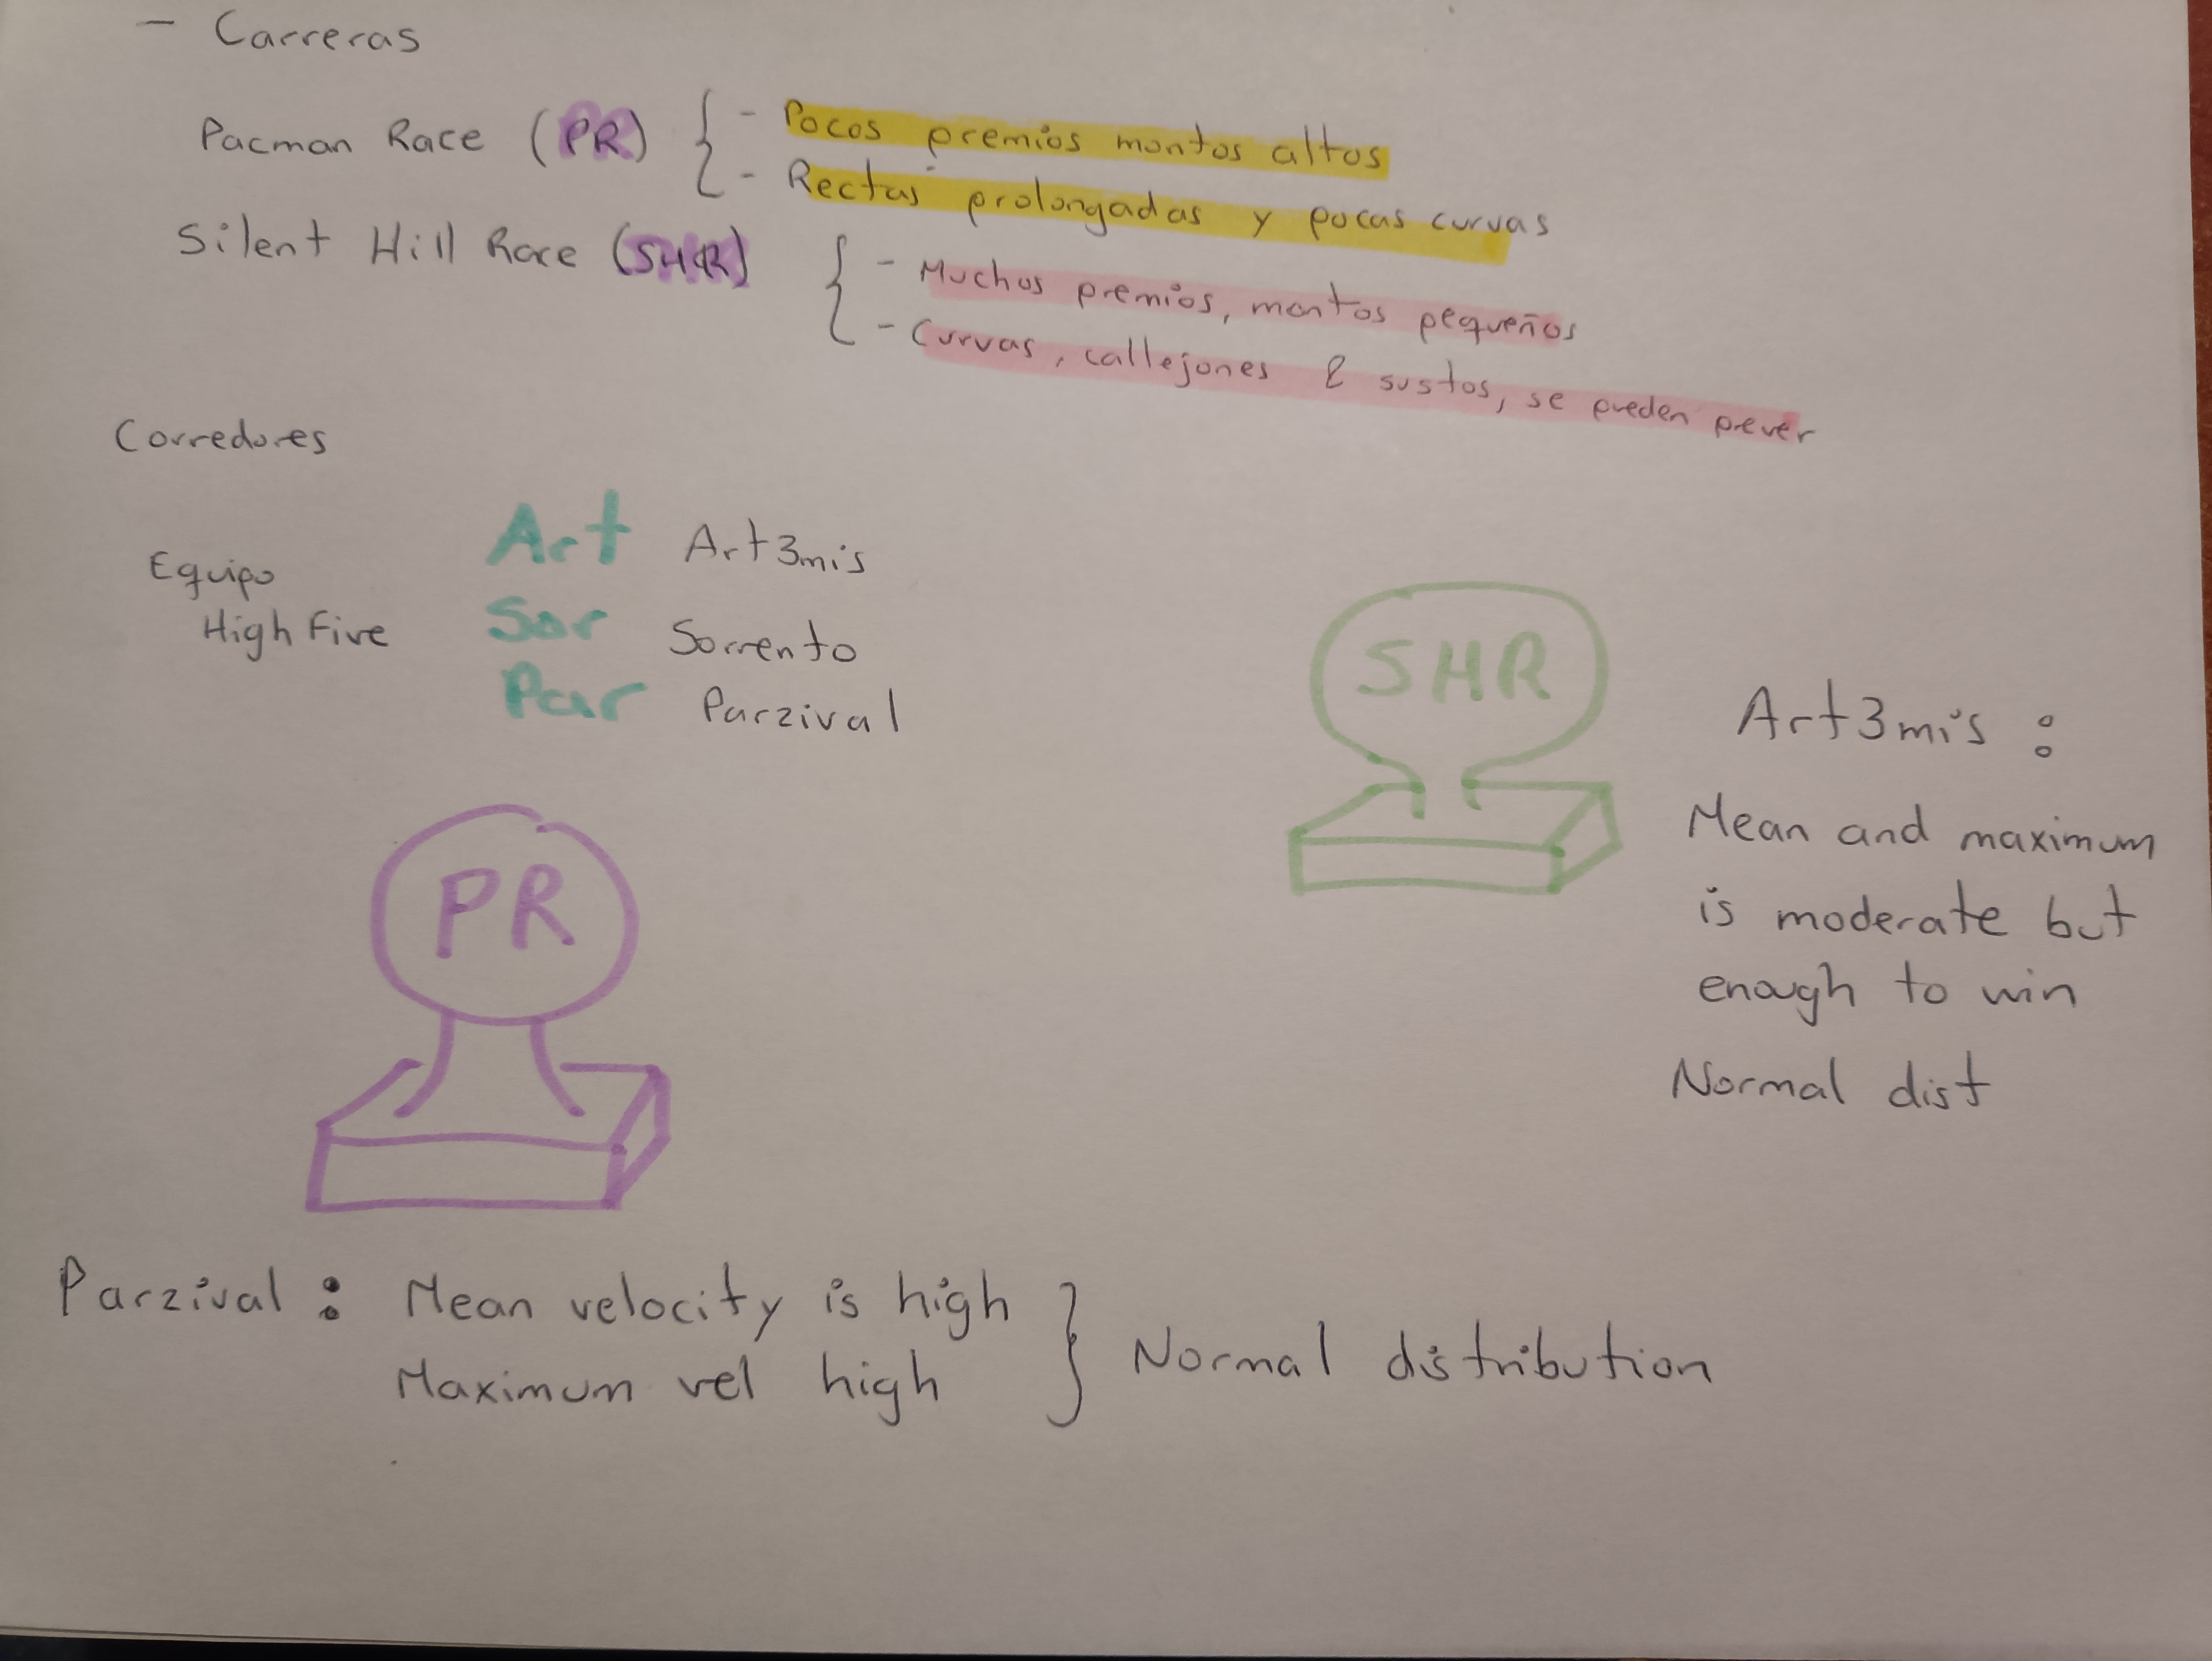 - Carreras
Pacman Race (PR) { - Pocos premios montos altos
- Rectas prolongadas y pocas curvas
Silent Hill Race (SHR) { - Muchos premios, montos pequeños
- Curvas, callejones & sustos, se pueden prever
Corredores
Equipo
High Five
Art Art3mis
Sor Sorrento
Par Parzival
SHR
Art3mis :
Mean and maximum
is moderate but
enough to win
Normal dist
PR
Parzival : Mean velocity is high
Maximum vel high
} Normal distribution